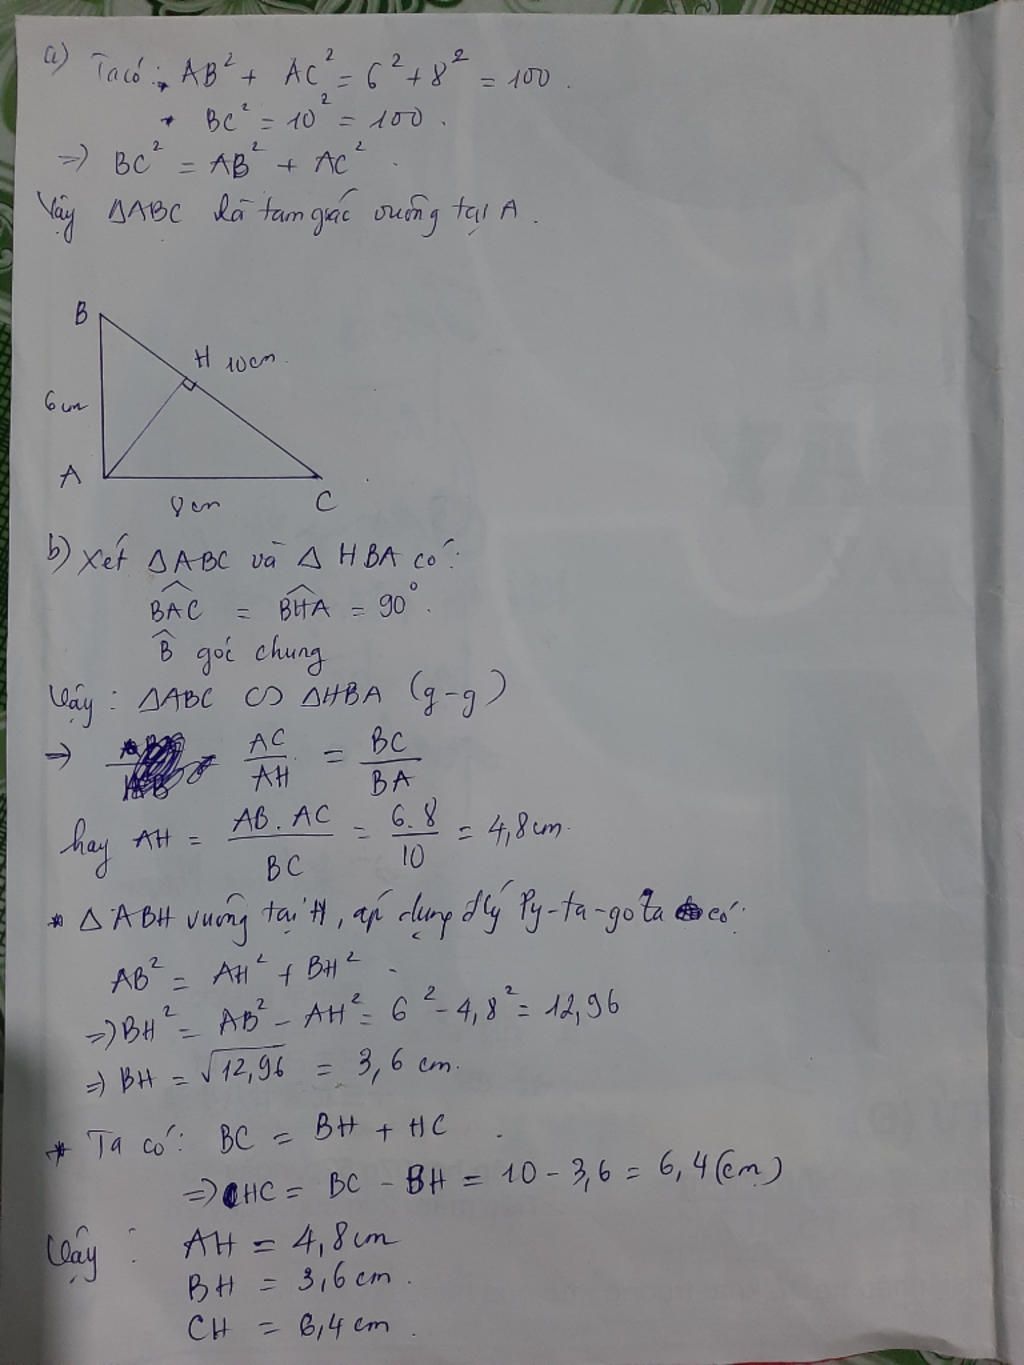 a) Ta có: * AB² + AC² = 6² + 8² = 100.
* BC² = 10² = 100.
=> BC² = AB² + AC².
Vậy ΔABC là tam giác vuông tại A.
B
H 10cm.
6cm
A
8cm
C
b) Xét ΔABC và ΔHBA có:
BAC = BHA = 90°.
B góc chung
Vậy: ΔABC ∽ ΔHBA (g-g)
=> AC/AH = BC/BA
hay AH = AB.AC/BC = 6.8/10 = 4,8cm.
* ΔABH vuông tại H, áp dụng đlý Py-ta-go ta có:
AB² = AH² + BH².
=> BH² = AB² - AH² = 6² - 4,8² = 12,96
=> BH = √12,96 = 3,6 cm.
* Ta có: BC = BH + HC.
=> HC = BC - BH = 10 - 3,6 = 6,4 (cm)
Vậy: AH = 4,8cm
BH = 3,6cm.
CH = 6,4cm.